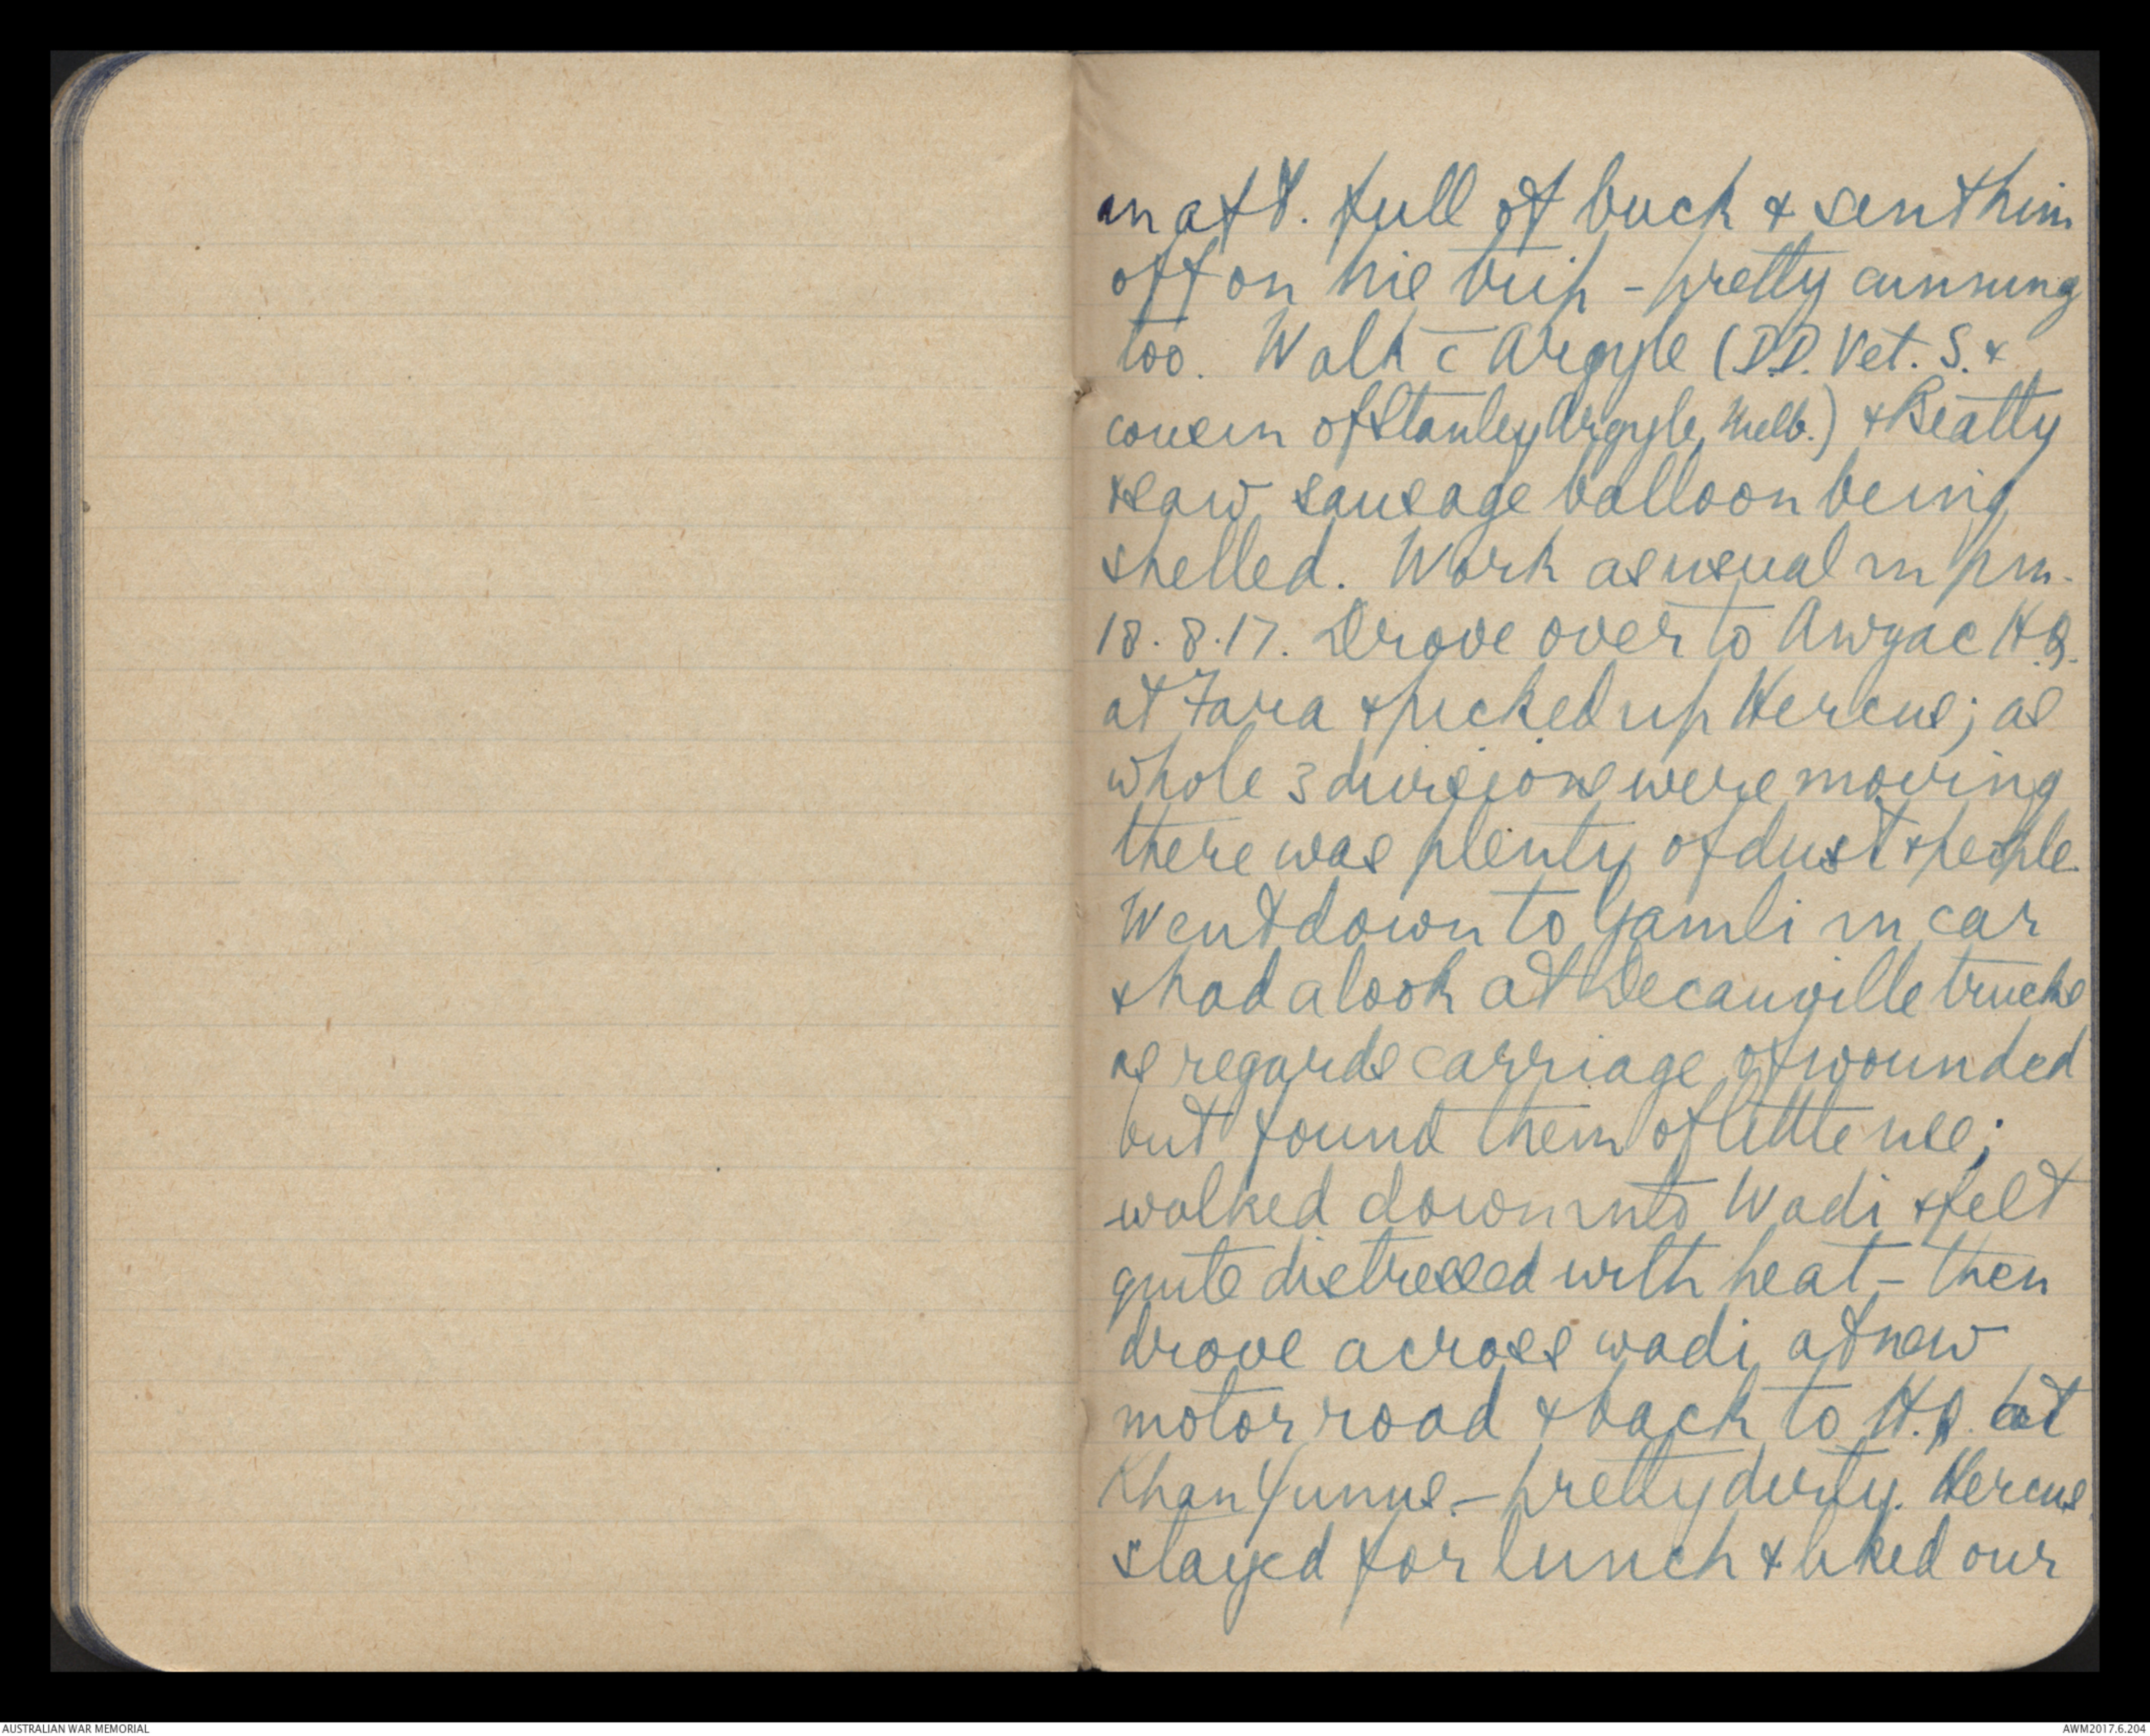 in aft. full of buck & sent him
off on his trip - pretty cunning
too. Walk c̄ Argyle (D.D. Vet. S. &
cousin of Stanley Argyle, Melb.) & Beatty
& saw sausage balloon being
shelled. Work as usual in pm.
18.8.17. Drove over to Anzac H.Q.
at Fara & picked up Hercus; as
whole 3 divisions were moving
there was plenty of dust & people.
Went down to Gamli in car
& had a look at Decauville trucks
as regards carriage of wounded
but found them of little use;
walked down into Wadi & felt
quite distressed with heat - then
drove across wadi at new
motor road & back to H.Q. at
Khan Yunus. - pretty dusty. Hercus
stayed for lunch & liked our
AUSTRALIAN WAR MEMORIAL
AWM2017.6.204